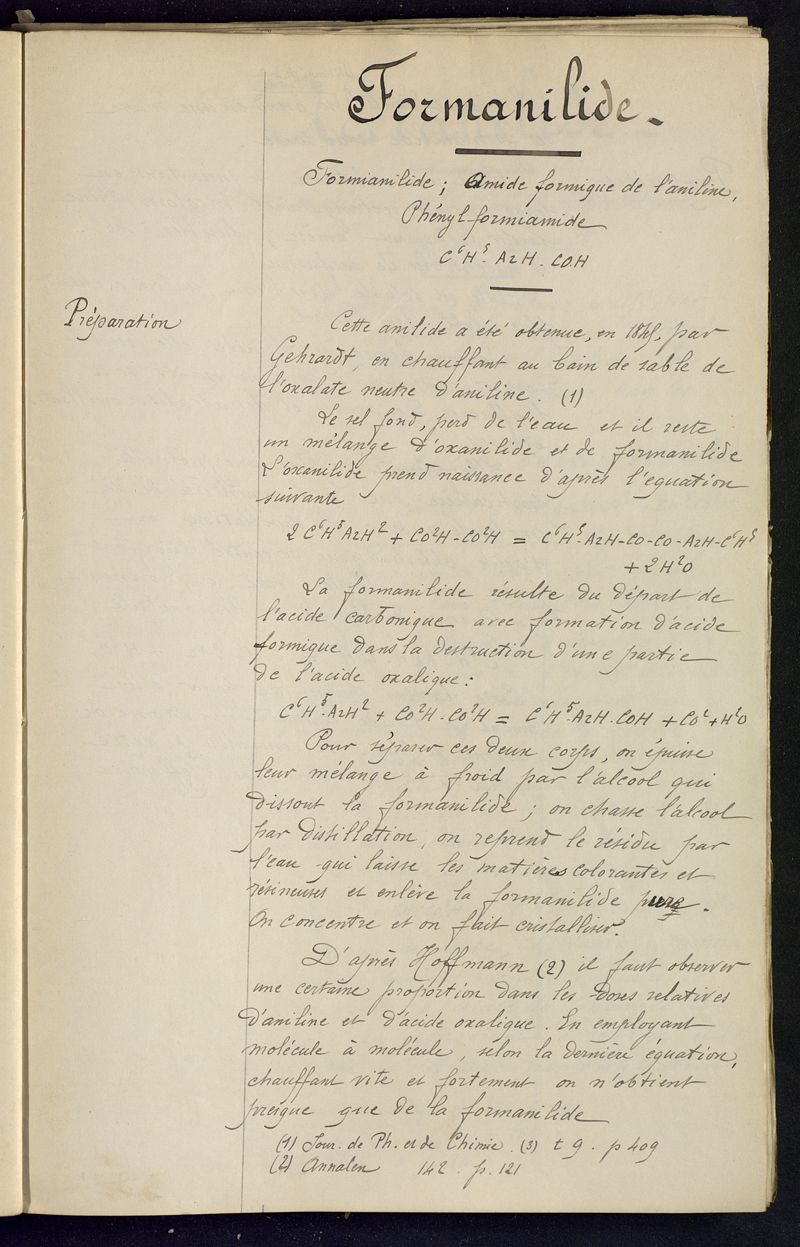 Formanilide.
Formianilide ; Amide formique de l'aniline,
Phényl-formiamide
C⁶H⁵-AzH.COH
Préparation
Cette anilide a été obtenue, en 1845, par
Gehrardt, en chauffant au bain de sable de
l'oxalate neutre d'aniline. (1)
Le sel fond, perd de l'eau et il reste
un mélange d'oxanilide et de formanilide
L'oxanilide prend naissance d'après l'équation
suivante
2 C⁶H⁵AzH² + CO²H-CO²H = C⁶H⁵-AzH-CO-CO-AzH-C⁶H⁵
+ 2H²O
La formanilide résulte du départ de
l'acide carbonique avec formation d'acide
formique dans la destruction d'une partie
de l'acide oxalique :
C⁶H⁵-AzH² + CO²H-CO²H = C⁶H⁵-AzH.COH + CO² + H²O
Pour séparer ces deux corps, on épuise
leur mélange à froid par l'alcool qui
dissout la formanilide ; on chasse l'alcool
par distillation, on reprend le résidu par
l'eau qui laisse les matières colorantes et
résineuses et enlève la formanilide pure.
On concentre et on fait cristalliser.
D'après Hoffmann (2) il faut observer
une certaine proportion dans les doses relatives
d'aniline et d'acide oxalique. En employant
molécule à molécule, selon la dernière équation,
chauffant vite et fortement on n'obtient
presque que de la formanilide
(1) Jour. de Ph. et de Chimie. (3) t 9. p 409
(2) Annalen 142. p. 121